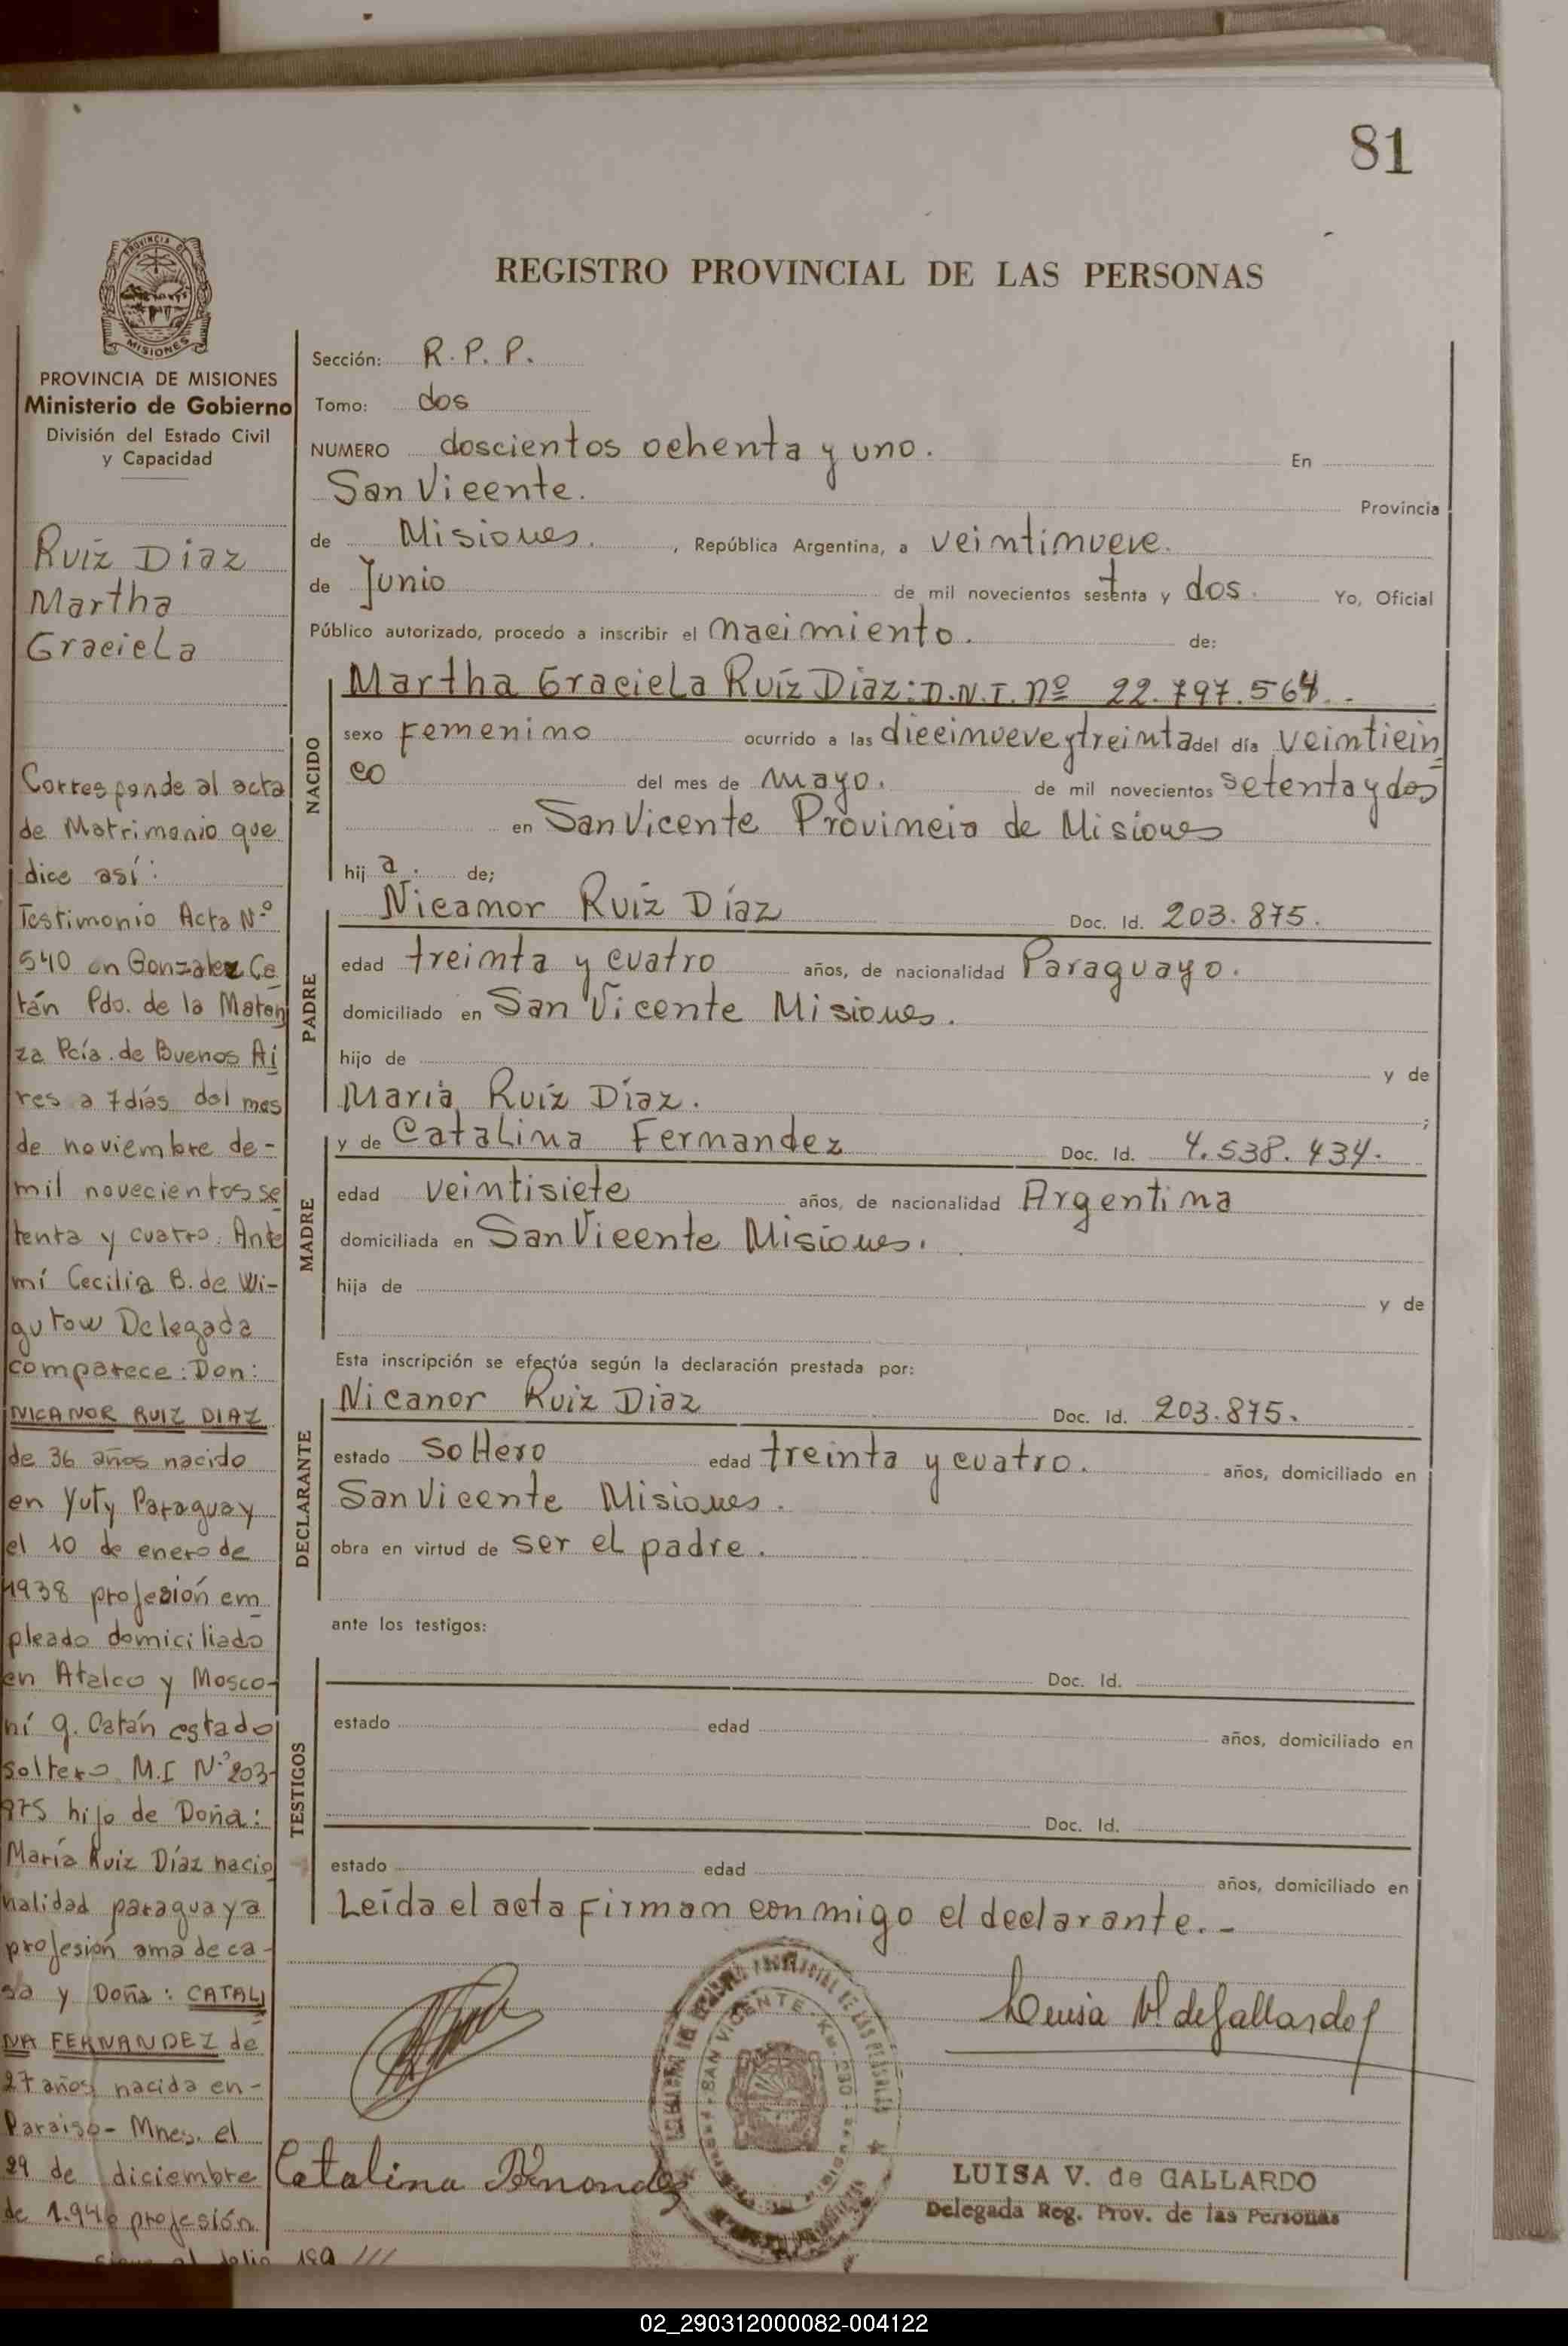 81
REGISTRO PROVINCIAL DE LAS PERSONAS
PROVINCIA DE
MISIONES
PROVINCIA DE MISIONES
Ministerio de Gobierno
División del Estado Civil
y Capacidad
Ruíz Díaz
Martha
Graciela
Corresponde al acta
de Matrimonio que
dice así:
Testimonio Acta Nº
540 en Gonzalez Ca
tán Pdo. de la Matan
za Pcía. de Buenos Ai
res a 7 días del mes
de noviembre de-
mil novecientos se
tenta y cuatro. Ante
mí Cecilia B. de Wi-
gutow Delegada
comparece: Don:
NICANOR RUIZ DIAZ
de 36 años nacido
en Yuty Paraguay
el 10 de enero de
1938 profesión em
pleado domiciliado
en Atalco y Mosco-
ni g. Catán estado
soltero M.I Nº 203-
875 hijo de Doña:
María Ruiz Díaz nacio
nalidad paraguaya
profesión ama de ca-
sa y Doña: CATALI
NA FERNANDEZ de
27 años nacida en-
Paraiso- Mnes. el
29 de diciembre
de 1.946 profesión
sigue al folio 189 ///
Sección: R.P.P.
Tomo: dos
NUMERO doscientos ochenta y uno. En
San Vicente. Provincia
de Misiones. , República Argentina, a veintinueve.
de Junio de mil novecientos setenta y dos. Yo, Oficial
Público autorizado, procedo a inscribir el nacimiento. de:
NACIDO
Martha Graciela Ruíz Díaz: D.N.I. nº 22.797.564.-
sexo Femenino ocurrido a las diecinueve y treinta del día veinticin
co del mes de mayo. de mil novecientos setenta y dos
en San Vicente Provincia de Misiones
hija. de;
PADRE
Nicanor Ruíz Díaz Doc. Id. 203.875.
edad treinta y cuatro años, de nacionalidad Paraguayo.
domiciliado en San Vicente Misiones.
hijo de y de
María Ruíz Díaz. ;
MADRE
y de Catalina Fernandez Doc. Id. 4.538.434.
edad veintisiete años, de nacionalidad Argentina
domiciliada en San Vicente Misiones.
hija de y de
Esta inscripción se efectúa según la declaración prestada por:
DECLARANTE
Nicanor Ruiz Diaz Doc. Id. 203.875.
estado soltero edad treinta y cuatro. años, domiciliado en
San Vicente Misiones.
obra en virtud de ser el padre.
ante los testigos:
TESTIGOS
Doc. Id.
estado edad años, domiciliado en
Doc. Id.
estado edad años, domiciliado en
Leída el acta firman conmigo el declarante.-
Luisa V. de Gallardo
Catalina Fernandez
SAN VICENTE
LUISA V. de GALLARDO
Delegada Reg. Prov. de las Personas
02_290312000082-004122